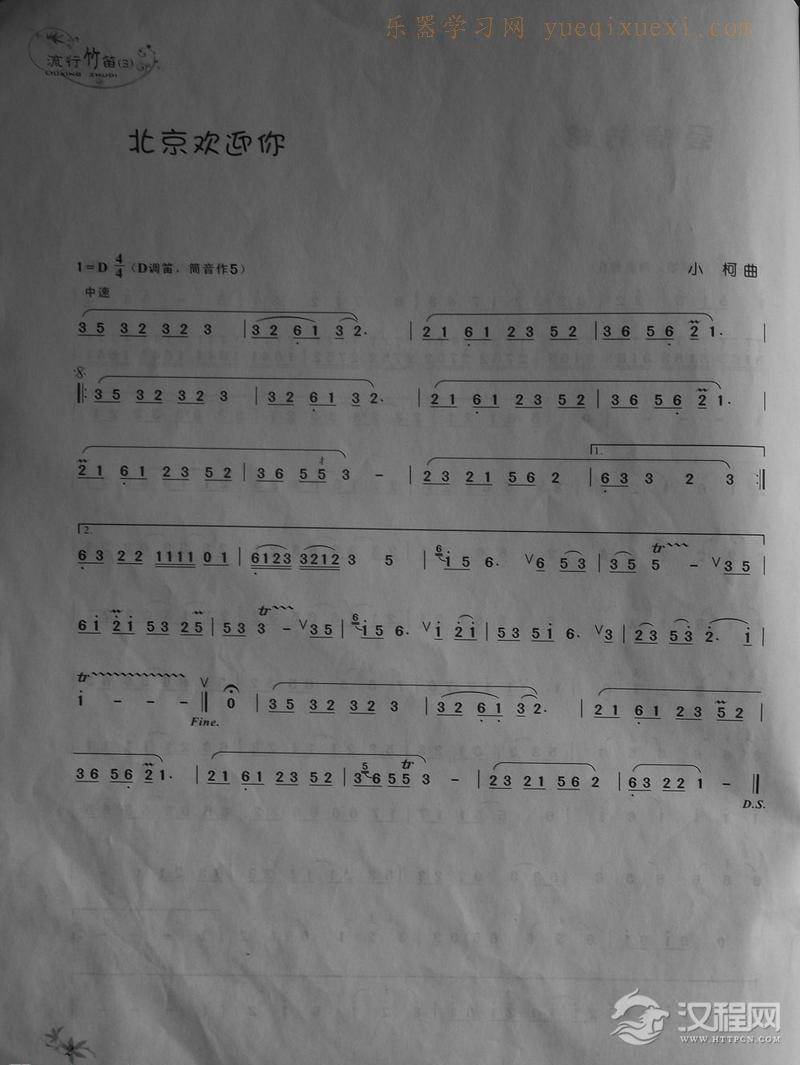 乐器学习网 yueqixuexi.com
流行竹笛(3)
LIUXING ZHUDI
北京欢迎你
1=D 4/4 (D调笛，筒音作5)
小柯曲
中速
3 5 3 2 3 2 3 | 3 2 6 1 3 2. | 2 1 6 1 2 3 5 2 | 3 6 5 6 2 1. |
𝄋
‖: 3 5 3 2 3 2 3 | 3 2 6 1 3 2. | 2 1 6 1 2 3 5 2 | 3 6 5 6 2 1. |
1.
2 1 6 1 2 3 5 2 | 3 6 5 5 3 - | 2 3 2 1 5 6 2 | 6 3 3 2 3 :‖
2.
6 3 2 2 1 1 1 1 0 1 | 6 1 2 3 3 2 1 2 3 5 | 6 i 5 6. V 6 5 3 | 3 5 tr 5 - V 3 5 |
6 i 2 i 5 3 2 5 | 5 3 tr 3 - V 3 5 | 6 i 5 6. V i 2 i | 5 3 5 i 6. V 3 | 2 3 5 3 2. i |
tr i - - - ‖ V 0 | 3 5 3 2 3 2 3 | 3 2 6 1 3 2. | 2 1 6 1 2 3 5 2 |
Fine.
3 6 5 6 2 1. | 2 1 6 1 2 3 5 2 | 3 5 6 5 5 tr 3 - | 2 3 2 1 5 6 2 | 6 3 2 2 1 - ‖
D.S.
汉程网
WWW.HTTPCN.COM